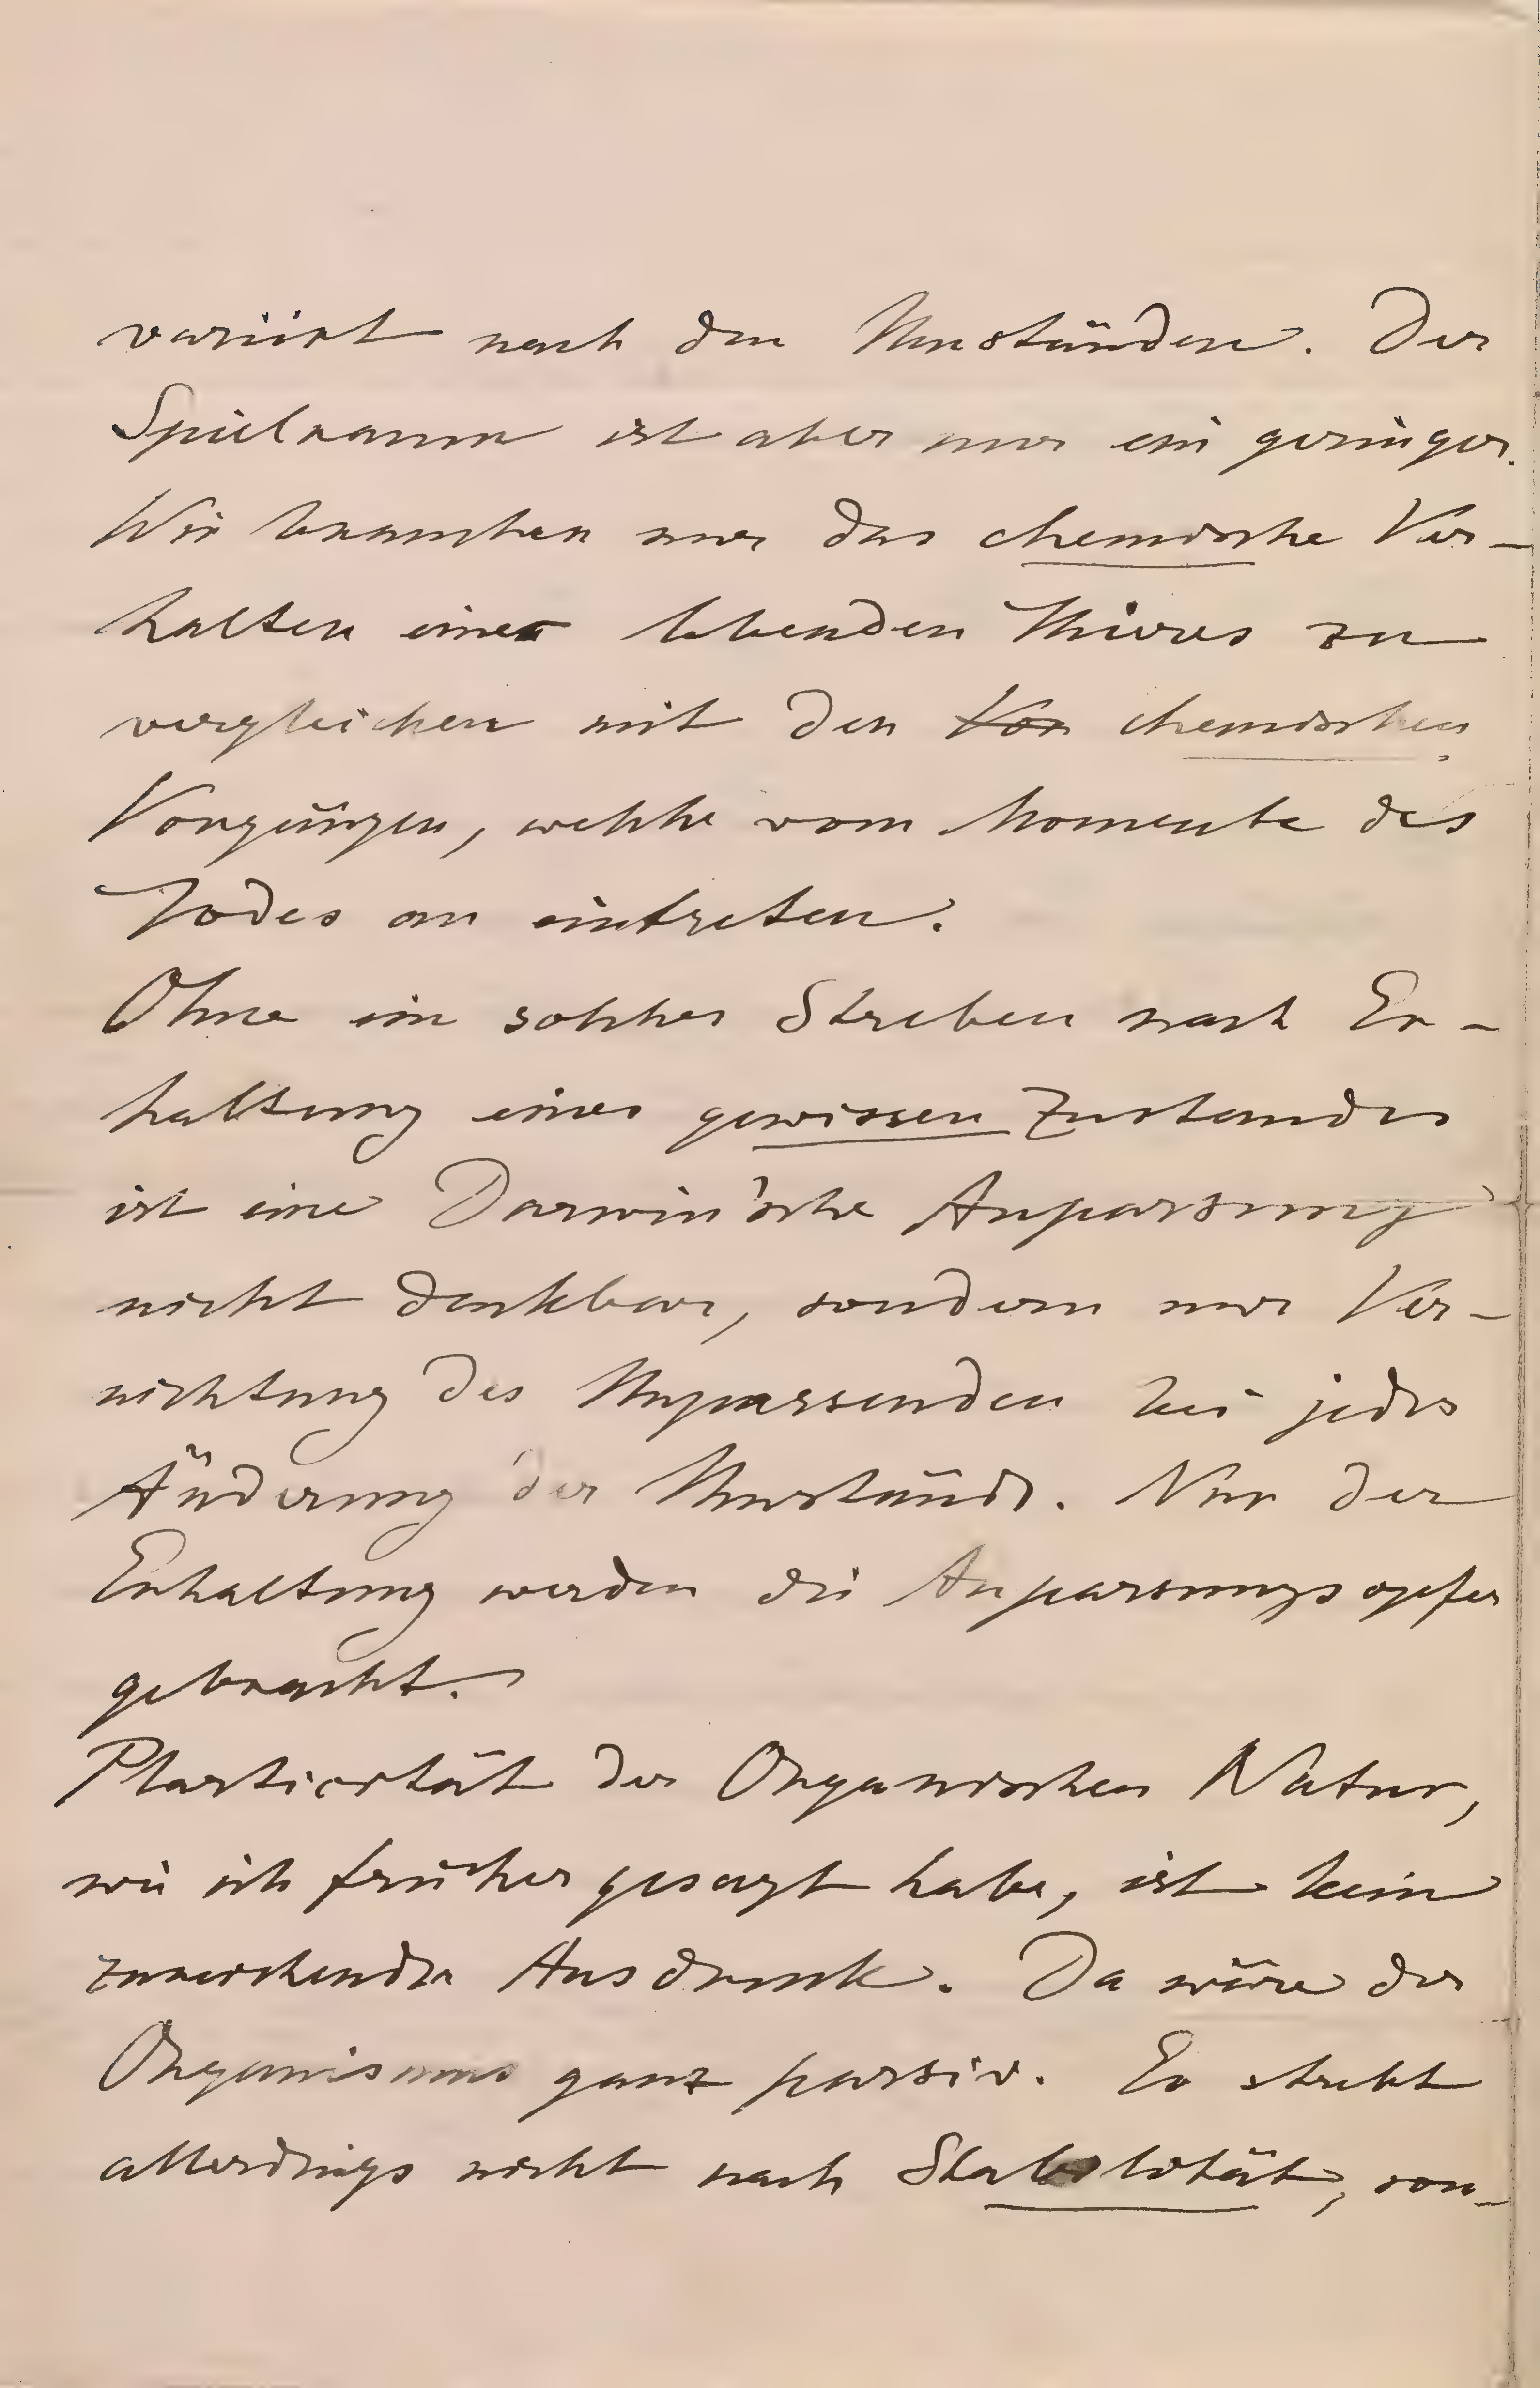 variirt nach den Umständen. Der
Spielraum ist aber nur ein geringer.
Wir brauchen nur das chemische Ver-
halten eines lebenden Thieres zu
vergleichen mit den Vor chemischen
Vorgängen, welche vom Momente des
Todes an eintreten.
Ohne ein solches Streben nach Er-
haltung eines gewissen Zustandes
ist eine Darwin'sche Anpassung
nicht denkbar, sondern nur Ver-
nichtung des Unpassenden bei jeder
Änderung der Umstände. Nur der
Erhaltung werden die Anpassungsopfer
gebracht.
Plasticität der Organischen Natur,
wie ich früher gesagt habe, ist kein
zureichender Ausdruck. Da wäre der
Organismus ganz passiv. Er strebt
allerdings nicht nach Stabilität, son-